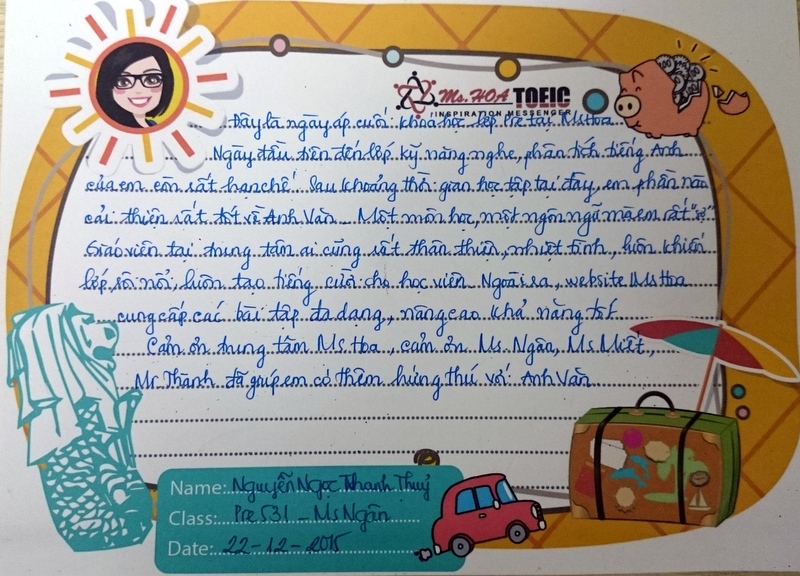 Ms. HOA TOEIC
INSPIRATION MESSENGER
Đây là ngày áp cuối khoá học lớp Pre tại Ms Hoa
Ngày đầu tiên đến lớp kỹ năng nghe, phân tích tiếng Anh
của em còn rất hạn chế. Sau khoảng thời gian học tập tại đây, em phần nào
cải thiện rất tốt về Anh Văn. Một môn học, một ngôn ngữ mà em rất "sợ"
Giáo viên tại trung tâm ai cũng rất thân thiện, nhiệt tình, luôn khiến
lớp sôi nổi, luôn tạo tiếng cười cho học viên. Ngoài ra, website Ms Hoa
cung cấp các bài tập đa dạng, nâng cao khả năng tốt
Cảm ơn trung tâm Ms Hoa, cảm ơn Ms. Ngân, Ms Mết,
Mr Thành đã giúp em có thêm hứng thú với Anh Văn
Name: Nguyễn Ngọc Thanh Thuỷ
Class: Pre531 - Ms Ngân
Date: 22-12-2015